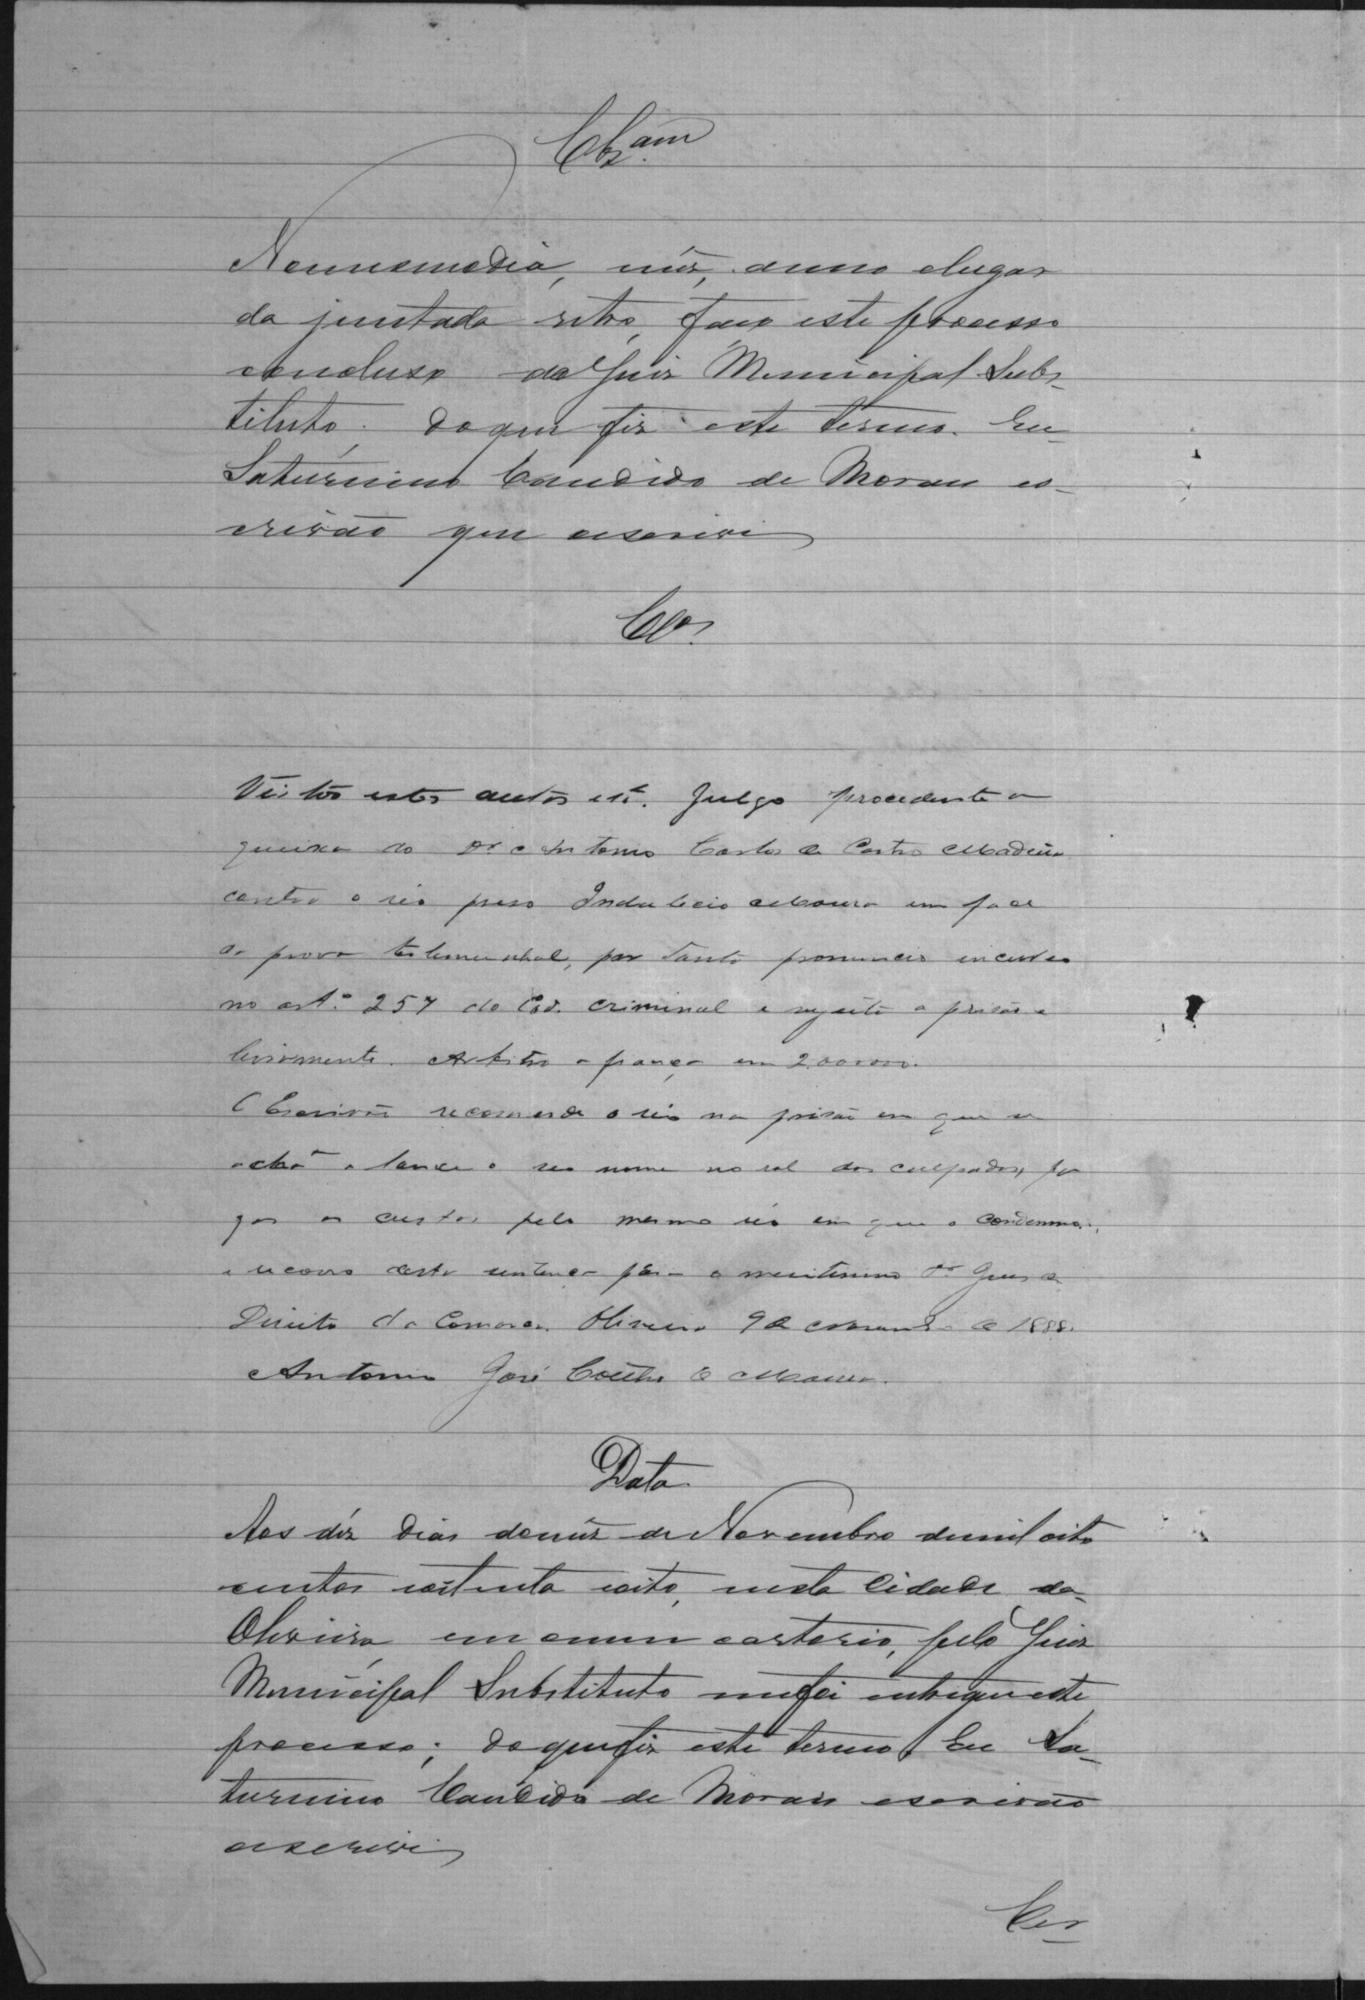 Clsam
No mesmo dia, mez, anno e lugar
da juntada retro, faço este processo
concluso ao Juiz Municipal Subs-
tituto. do que fiz este termo. Eu
Saturnino Candido de Moraes es-
crivão que escrevi
Clos.
Vistos estes autos etc. Julgo procedente a
queixa do Dr Antonio Carlos de Castro Madeira
contra o réo preso Indalecio Moura em face
da prova testemunhal, por tanto pronuncio incurso
no art.º 257 do Cod. criminal e sujeito a prisão e
livramento. Arbitro a fiança em 2.000000.
O Escrivão recomende o réo na prisão em que se
acha e lance o seo nome no rol dos culpados, pa
gas as custas pelo mesmo réo em que o condemno,
e recorro desta sentença para o meritissimo Dr Juiz de
Direito da Comarca. Oliveira 9 de Novembro de 1888.
Antonio José Coelho de Moura.
Data
Aos déz dias do mêz de Novembro de mil oito
centos e oitenta e oito, nesta Cidade da
Oliveira em o meu cartorio, pelo Juiz
Municipal Substituto me foi entregue este
processo; do que fiz este termo. Eu Sa-
turnino Candido de Moraes escrivão
escrevi